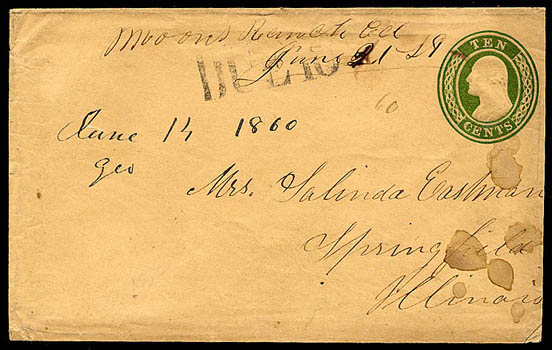 Mooons Ranch Cal
June 21 59
DUE 10
TEN
CENTS
60
June 14 1860
Geo
Mrs. Salinda Eastman
Springfield
Illinois